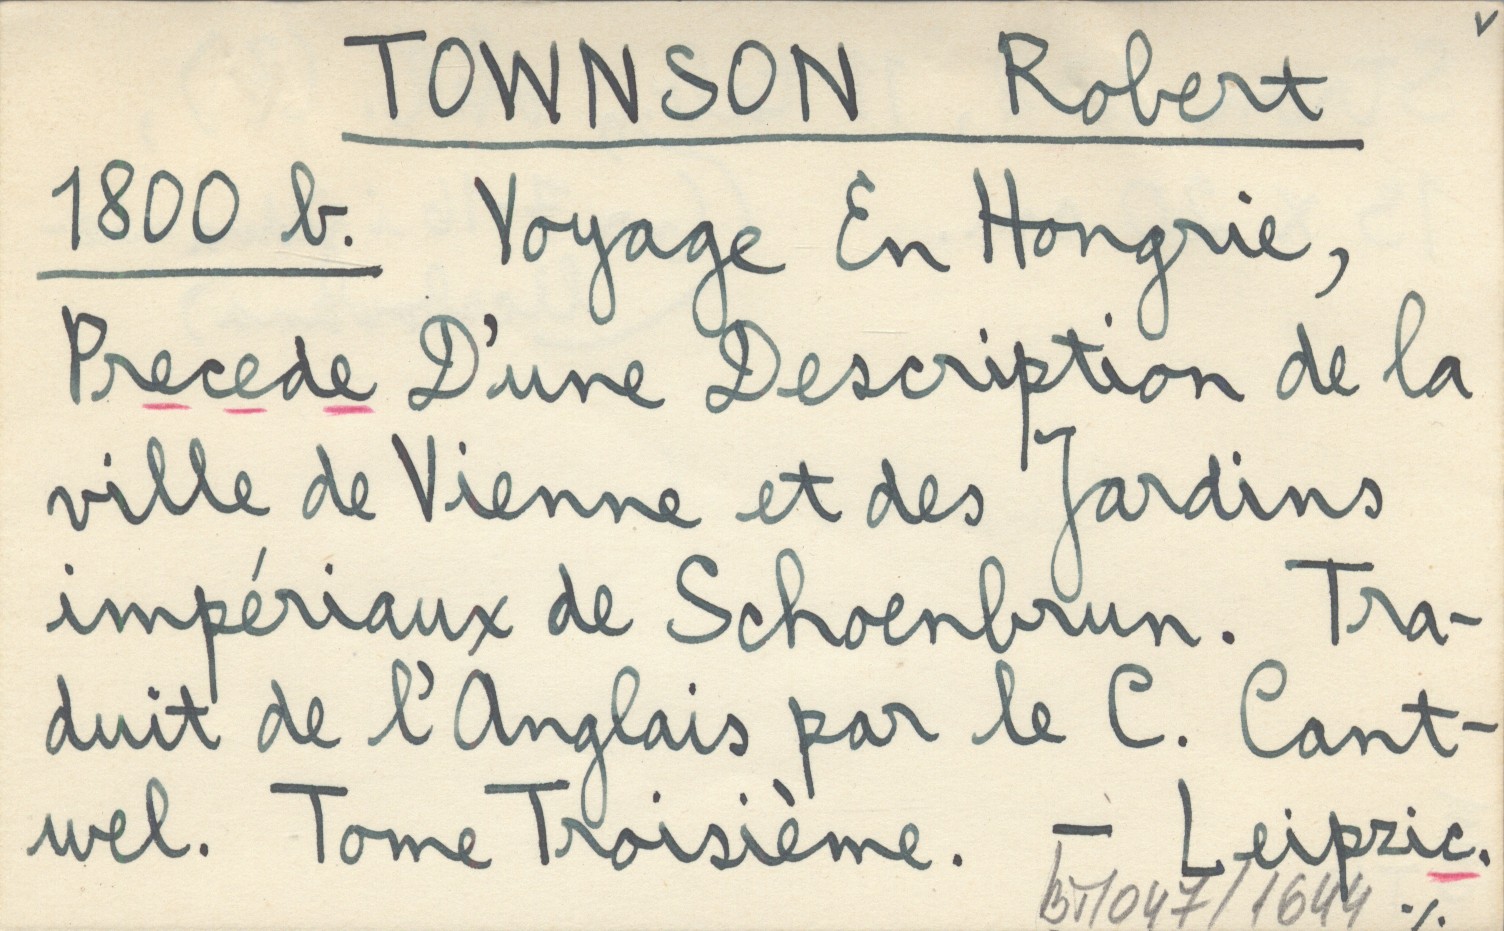 v
TOWNSON Robert
1800 b. Voyage En Hongrie,
Precede D'une Description de la
ville de Vienne et des Jardins
impériaux de Schoenbrun. Tra-
duit de l'Anglais par le C. Cant-
wel. Tome Troisième. – Leipzic.
1047/1644 ·/.